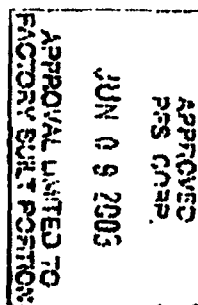 APPROVED
PFS CORP.
JUN 0 9 2003
APPROVAL LIMITED TO
FACTORY BUILT PORTION